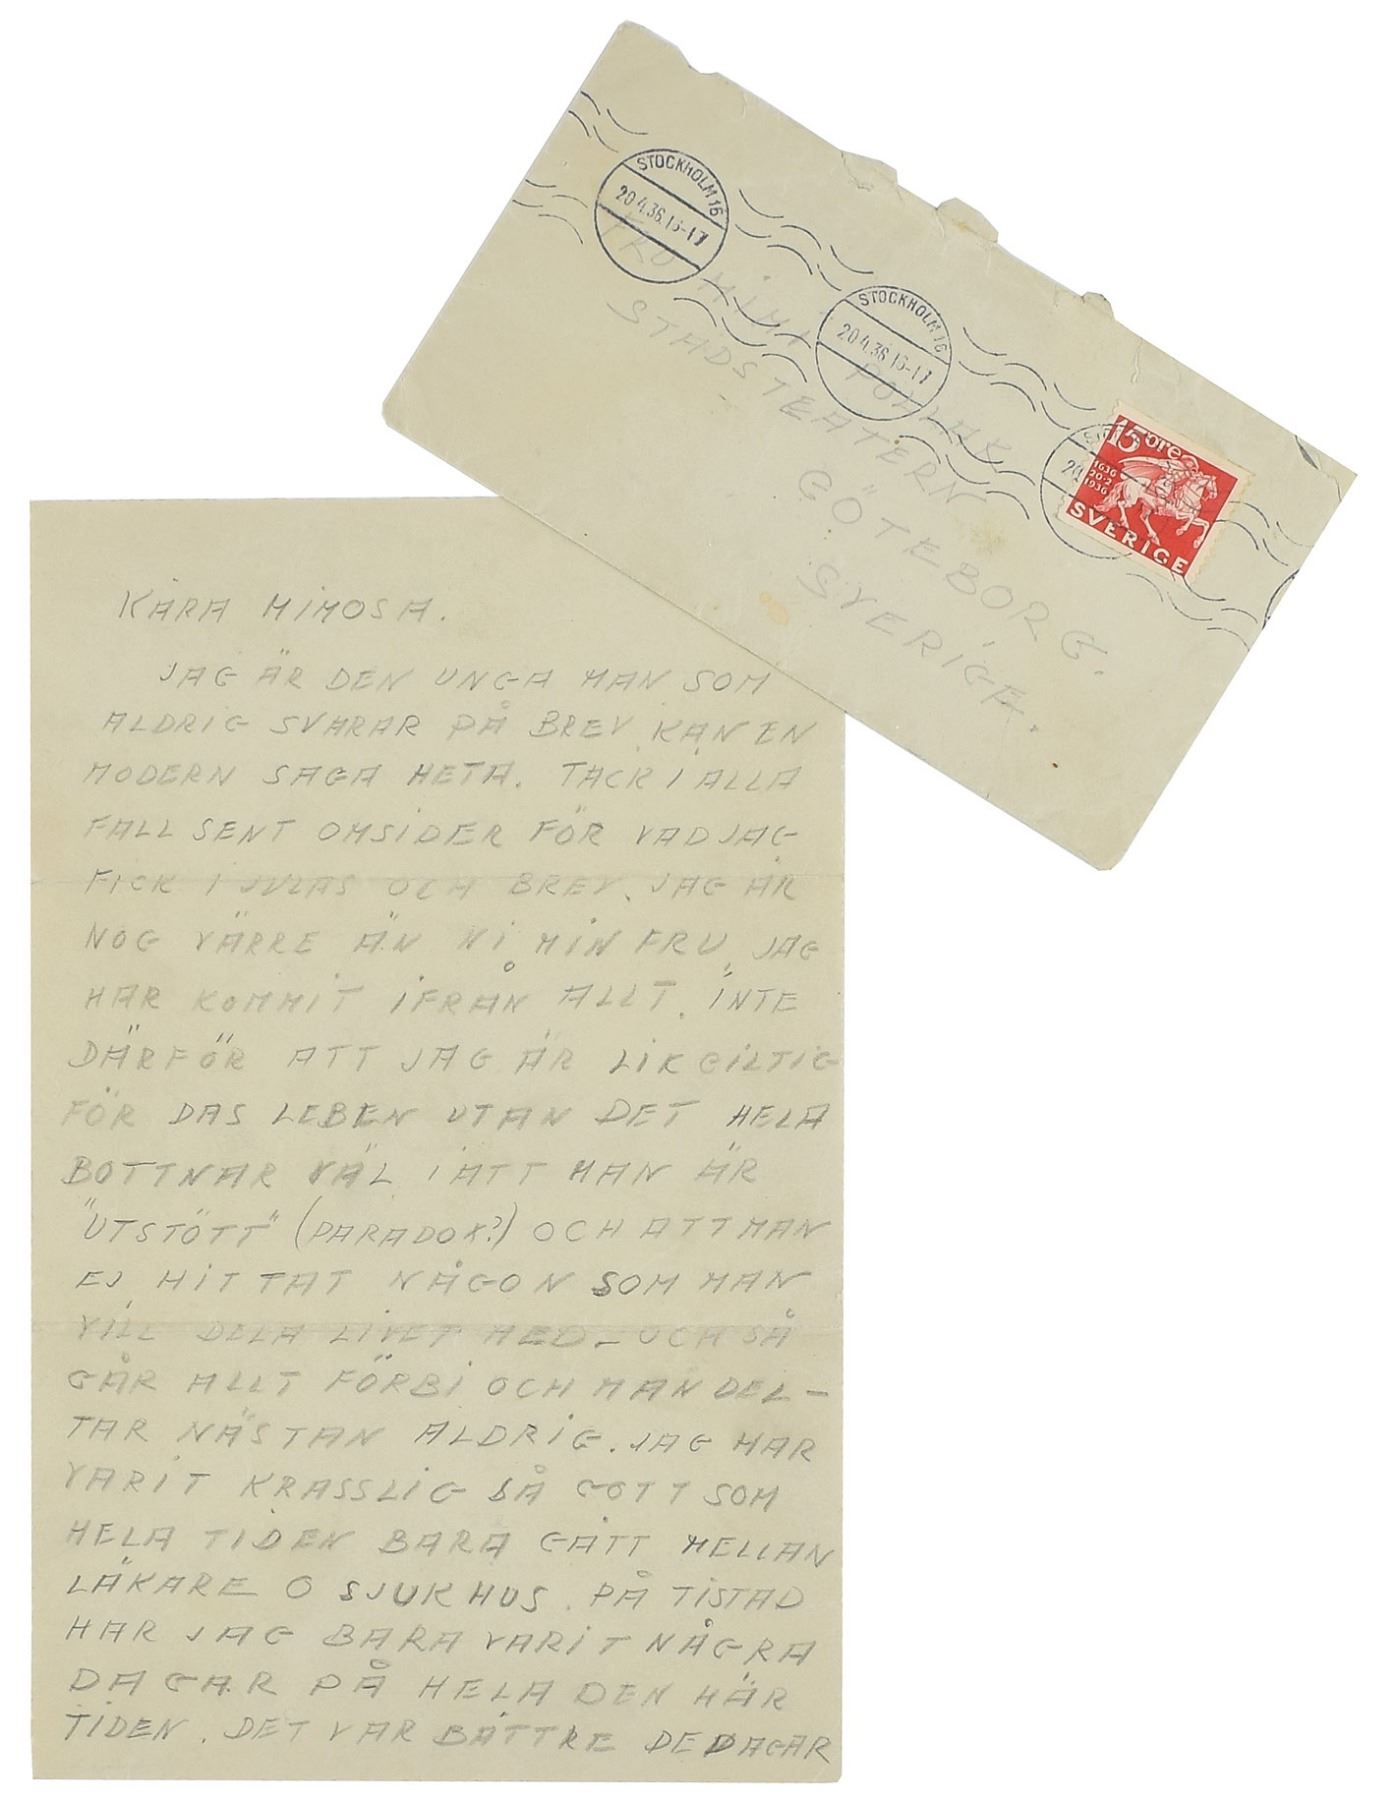 STOCKHOLM 16
20.4.36.16-17
STOCKHOLM 16
20.4.36.16-17
15 öre
1636
20·2
1936
SVERIGE
FRU MIMI POLLAK
STADSTEATERN
GÖTEBORG.
SVERIGE.
KÄRA MIMOSA.
JAG ÄR DEN UNGA MAN SOM
ALDRIG SVARAR PÅ BREV, KAN EN
MODERN SAGA HETA. TACK I ALLA
FALL SENT OMSIDER FÖR VAD JAG
FICK I JULAS OCH BREV. JAG ÄR
NOG VÄRRE ÄN NI, MIN FRU, JAG
HAR KOMMIT IFRÅN ALLT. INTE
DÄRFÖR ATT JAG ÄR LIKGILTIG
FÖR DAS LEBEN UTAN DET HELA
BOTTNAR VÄL I ATT MAN ÄR
"UTSTÖTT" (PARADOX?) OCH ATT MAN
EJ HITTAT NÅGON SOM MAN
VILL DELA LIVET MED – OCH SÅ
GÅR ALLT FÖRBI OCH MAN DEL–
TAR NÄSTAN ALDRIG. JAG HAR
VARIT KRASSLIG SÅ GOTT SOM
HELA TIDEN BARA GÅTT MELLAN
LÄKARE O SJUKHUS. PÅ TISTAD
HAR JAG BARA VARIT NÅGRA
DAGAR PÅ HELA DEN HÄR
TIDEN. DET VAR BÄTTRE DE DAGAR